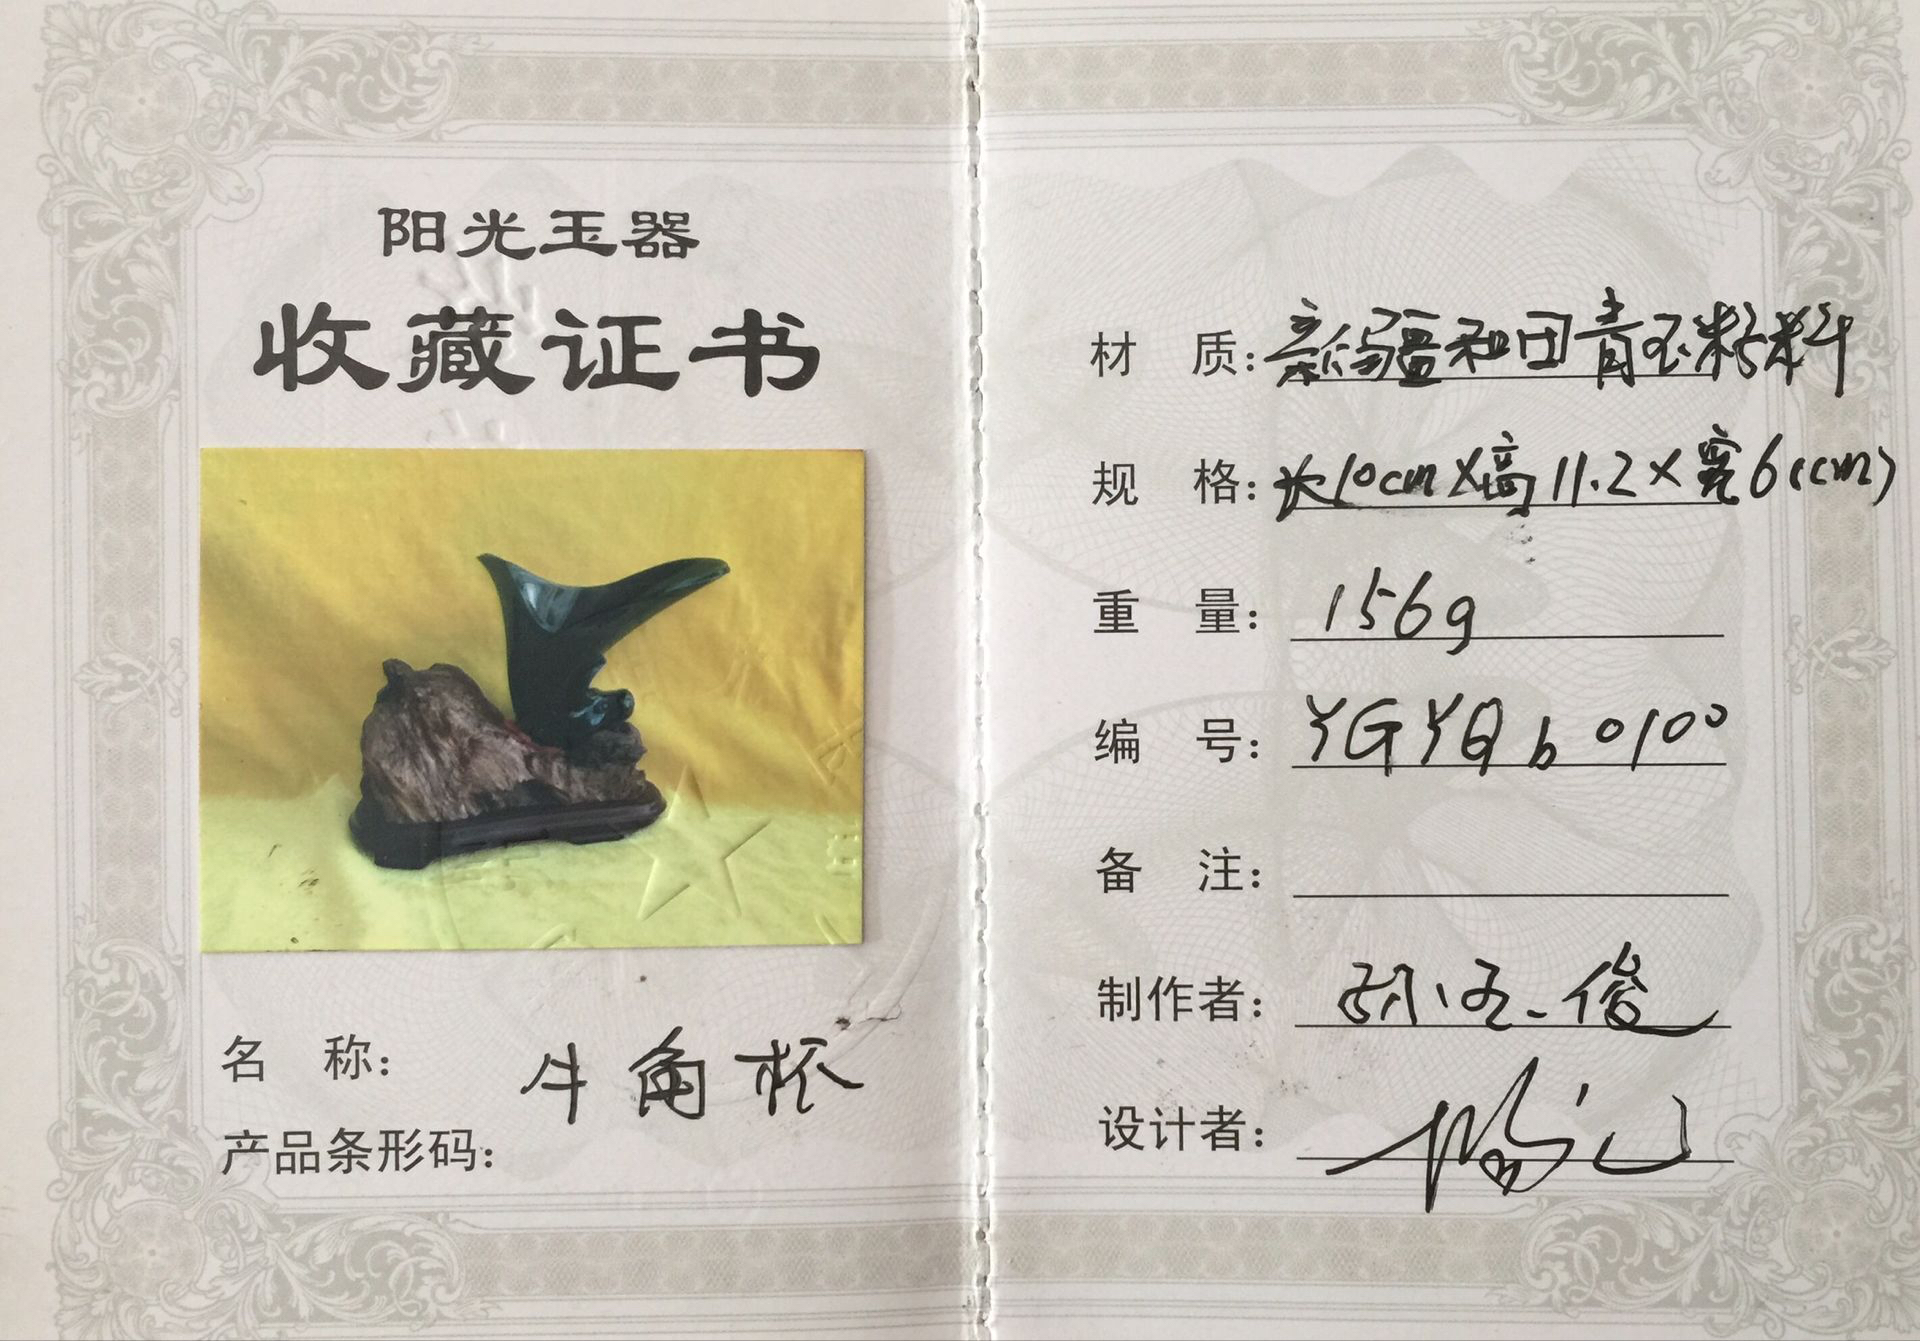 阳光玉器
收藏证书
名 称: 牛角杯
产品条形码:
材 质: 新疆和田青玉籽料
规 格: 长10cm×高11.2×宽6(cm)
重 量: 156g
编 号: YGYQb0100
备 注:
制作者:
设计者: